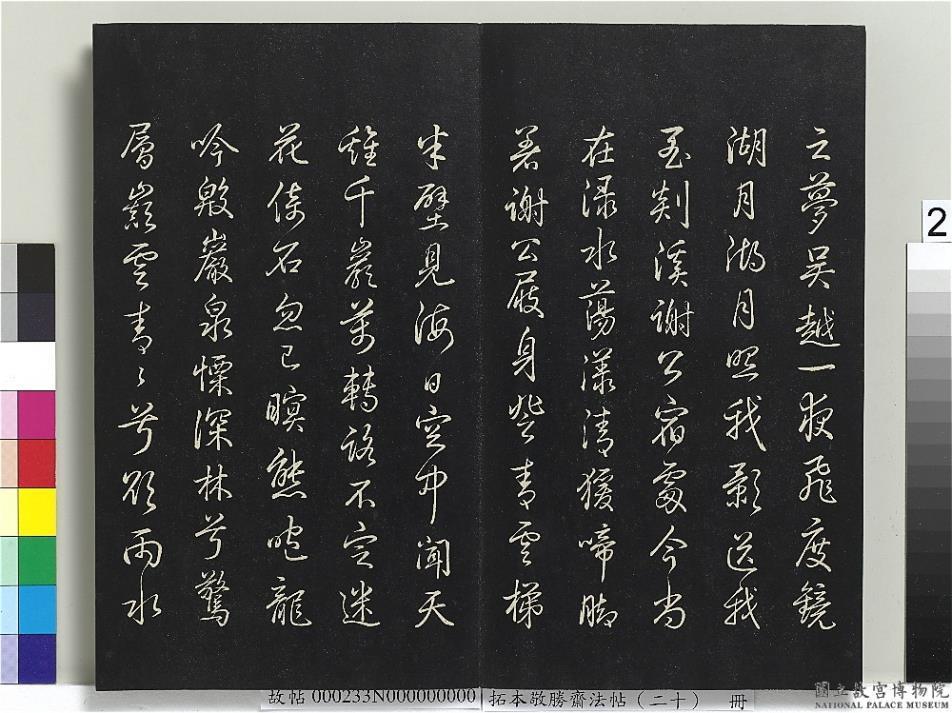 之夢吳越一夜飛度鏡
湖月湖月照我影送我
至剡溪謝公宿處今尚
在淥水蕩漾清猨啼腳
著謝公屐身登青雲梯
半壁見海日空中聞天
雞千巖萬轉路不定迷
花倚石忽已暝熊咆龍
吟殷巖泉慄深林兮驚
層巔雲青〻兮欲雨水
2
故帖000233N000000000
拓本敬勝齋法帖（二十） 冊
國立故宮博物院
NATIONAL PALACE MUSEUM